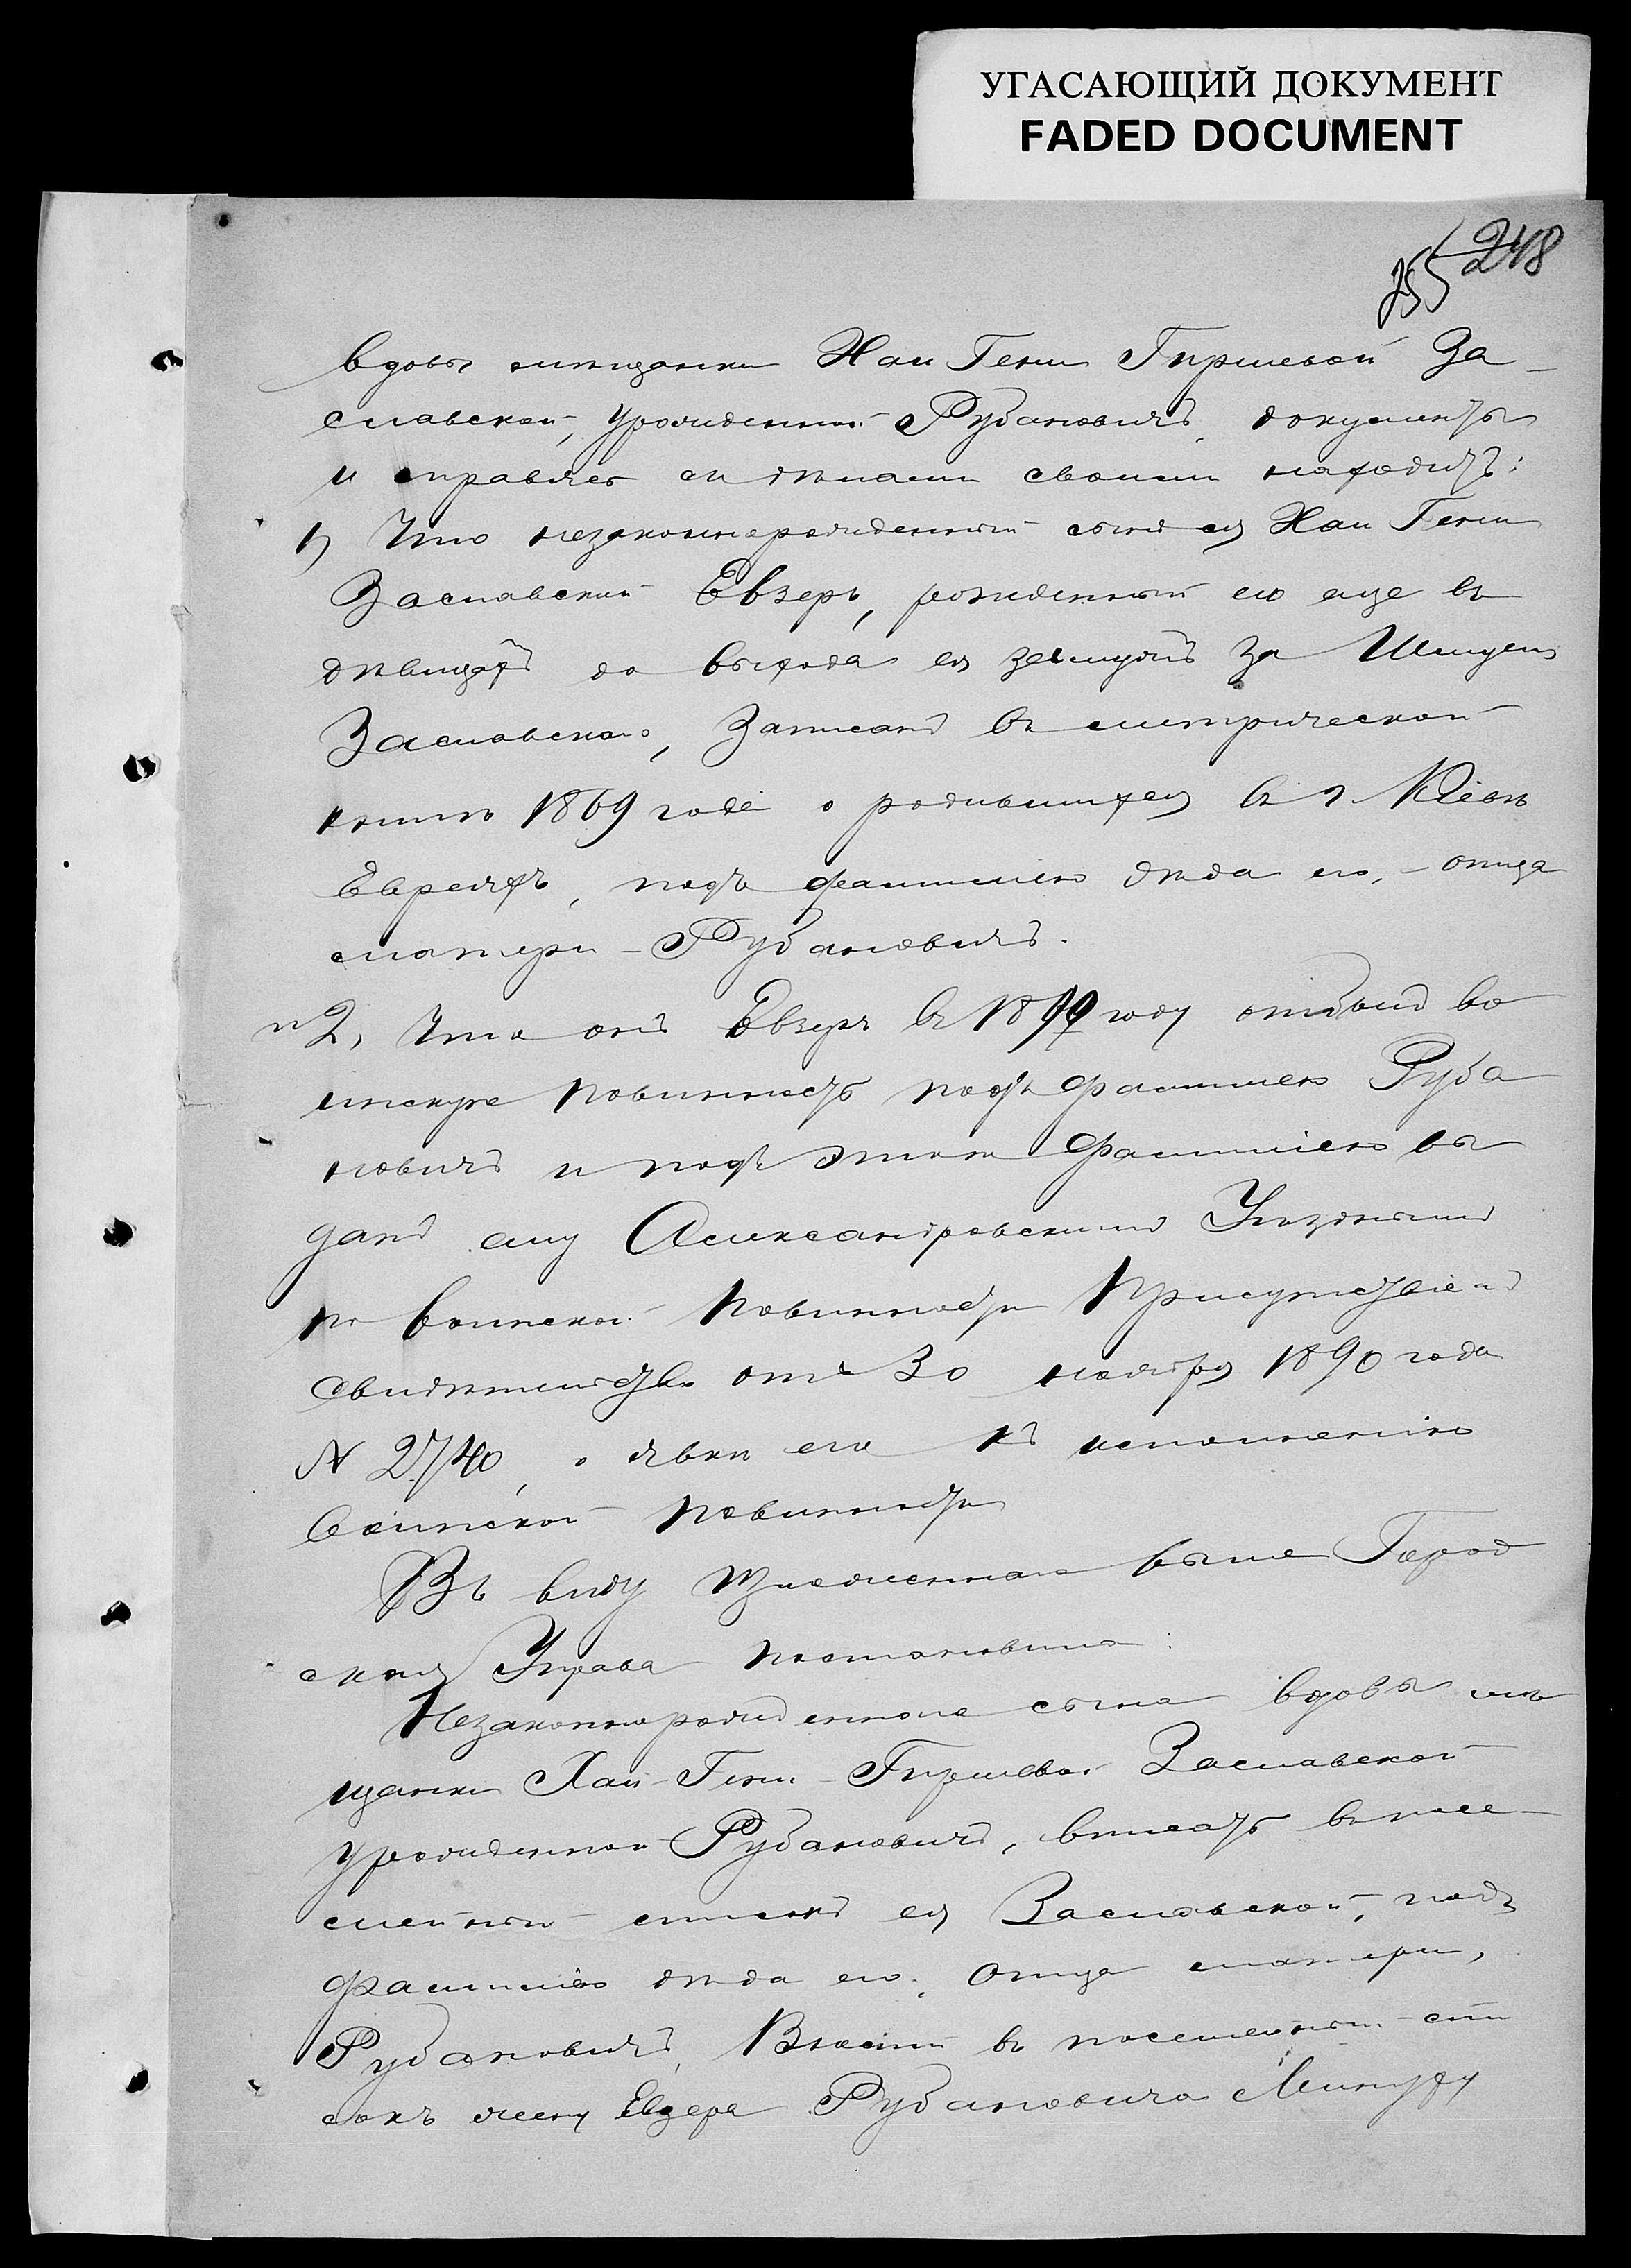 УГАСАЮЩИЙ ДОКУМЕНТ
FADED DOCUMENT
248
255
вдовы мѣщанки Хаи Гени Гиршевой За-
славской, урожденной Рубановичъ, документы
и справясь съ дѣлами своими находитъ:
1) Что незаконнорожденный сынъ ея Хаи Гени
Заславской Евзеръ, рожденный ею еще въ
дѣвицахъ до выхода ея замужъ за Шмуля
Заславскаго, записанъ въ метрической
книгѣ 1869 года о родившихся въ г. Кіевѣ
Евреяхъ, подъ фамиліею дѣда его, - отца
матери - Рубановичъ.
и 2, Что онъ Евзеръ въ 1890 году отбылъ во
инскую повинность подъ фамиліею Руба
новичъ и подъ этою фамиліею вы
дано ему Александровскимъ Уѣзднымъ
по воинской повинности Присутствіемъ
Свидѣтельство отъ 30 ноября 1890 года
№ 2740, о явкѣ его къ исполненію
воинской повинности
Въ виду изложеннаго выше Город
ская Управа постановила:
Незаконнорожденнаго сына вдовы мѣ
щанки Хаи-Гени-Гиршевой Заславской
урожденной Рубановичъ, вписать въ посе-
мейный списокъ ея Заславской, подъ
фамиліею дѣда его, отца матери,
Рубановичъ, Внести въ посемейный спи
сокъ жену Евзера Рубановича